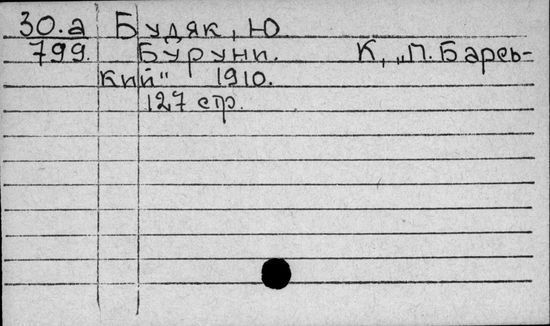 30.а Будяк, Ю.
799. Буруни. К, „П. Барсь-
кий“ 1910.
127 стр.